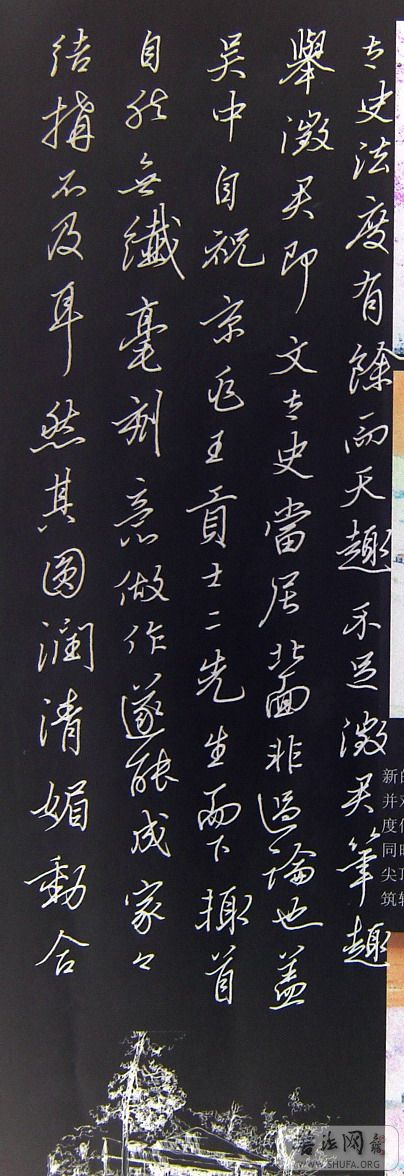 太史法度有餘而天趣不足徵君筆趣
舉徵君即文太史當居北面非過論也蓋
吳中自祝京兆王貢士二先生而下首
自然無纖毫刻意做作遂能成家々
結構不及耳然其圓潤清媚動合
新的
并
度
同时
尖
筑
书法网
WWW.SHUFA.ORG